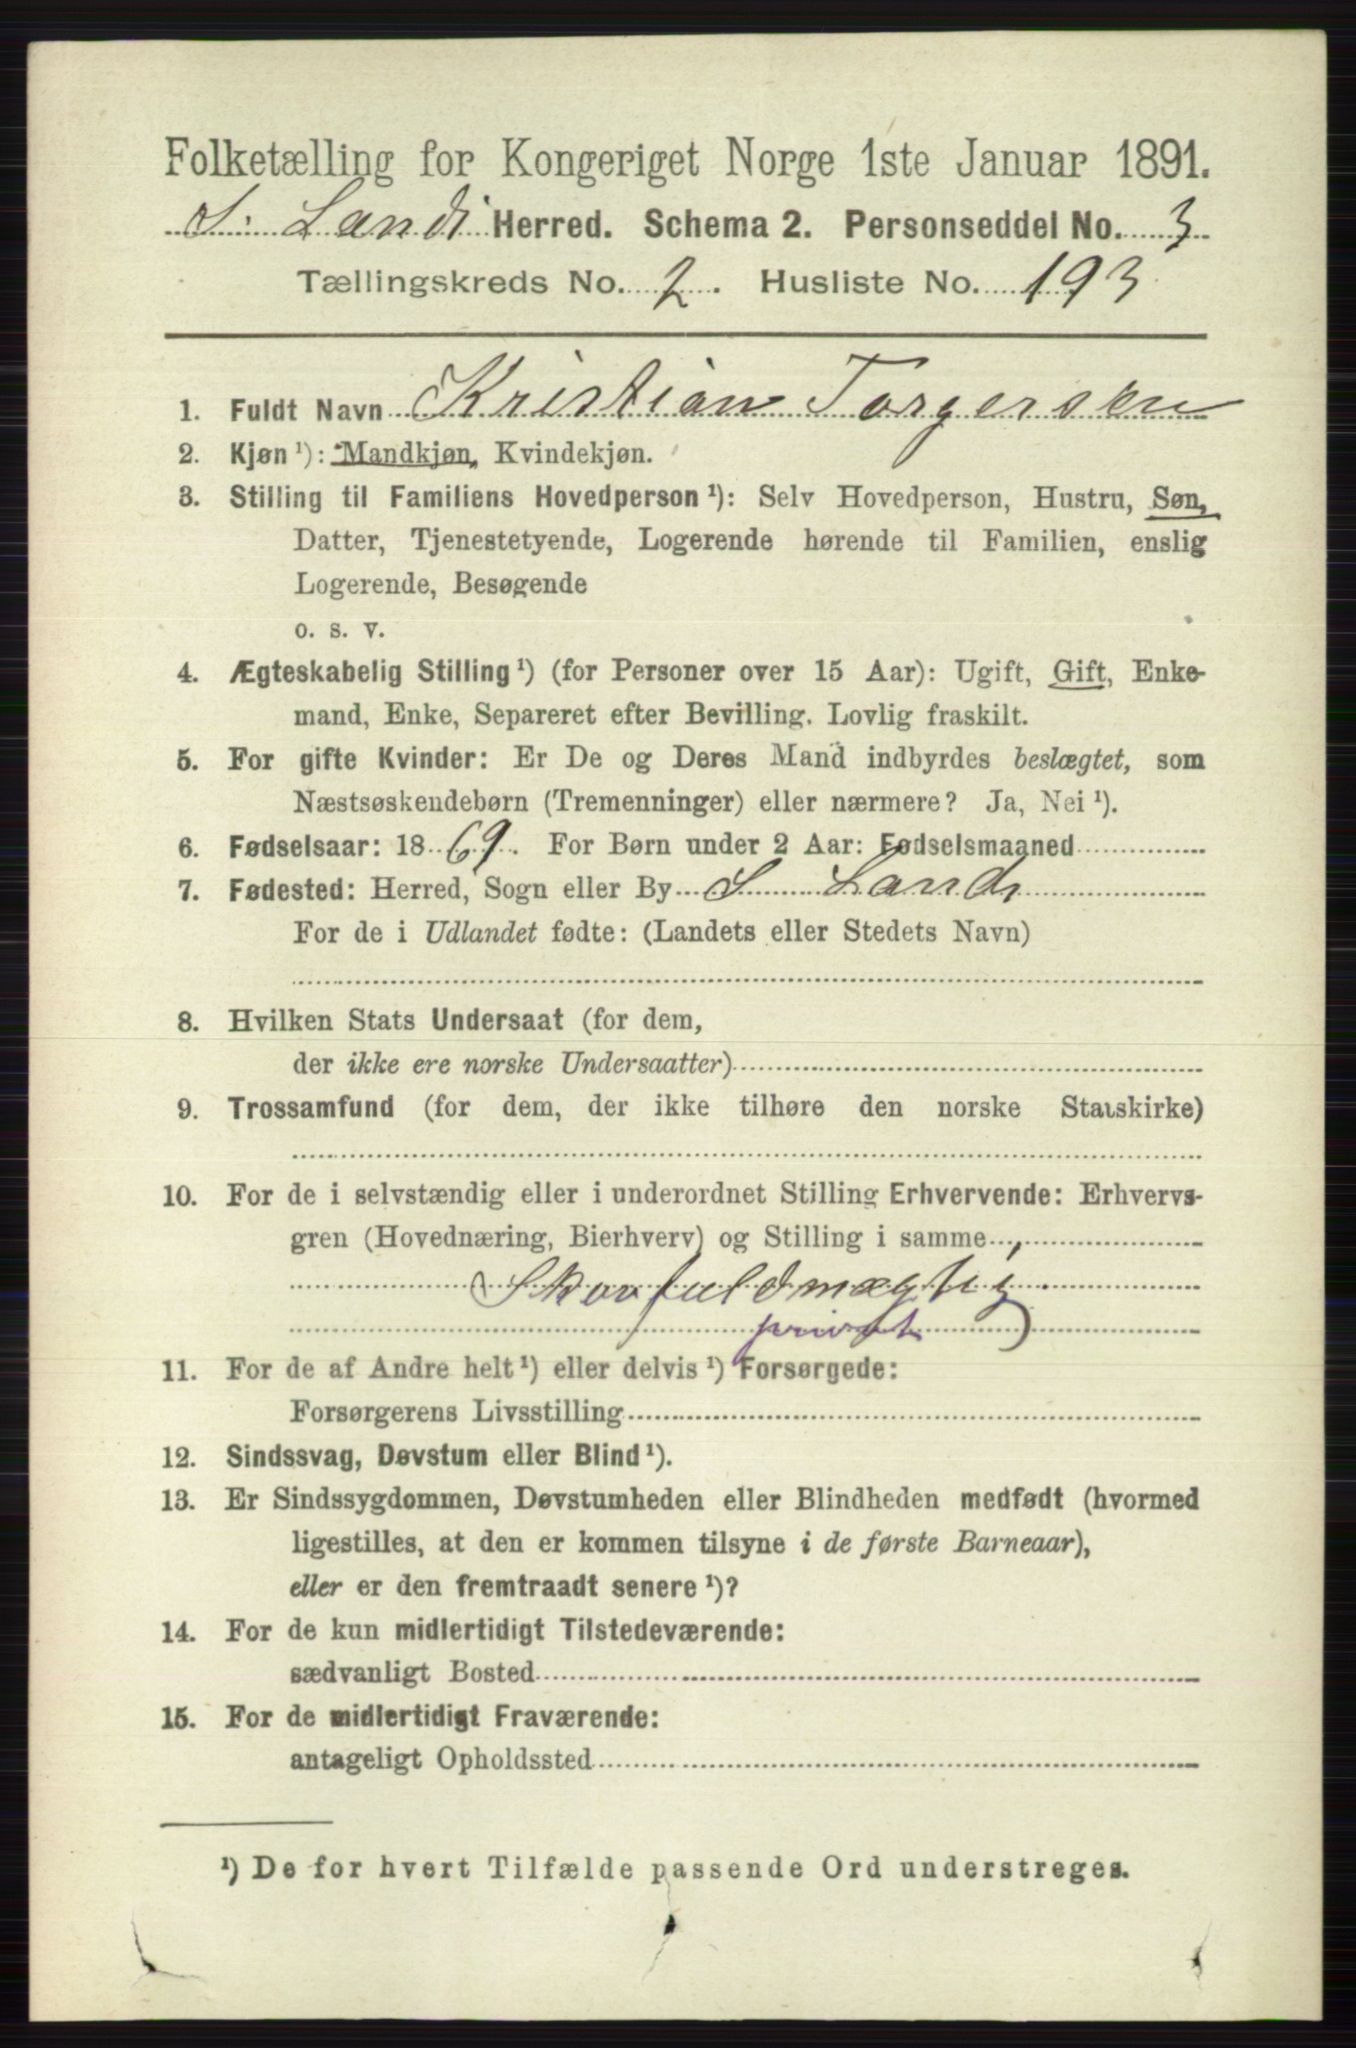 Folketælling for Kongeriget Norge 1ste Januar 1891.
S. Land Herred. Schema 2. Personseddel No. 3
Tællingskreds No. 2. Husliste No. 193
1. Fuldt Navn Kristian Torgersen
2. Kjøn¹): Mandkjøn, Kvindekjøn.
3. Stilling til Familiens Hovedperson¹): Selv Hovedperson, Hustru, Søn,
Datter, Tjenestetyende, Logerende hørende til Familien, enslig
Logerende, Besøgende
o. s. v.
4. Ægteskabelig Stilling¹) (for Personer over 15 Aar): Ugift, Gift, Enke-
mand, Enke, Separeret efter Bevilling. Lovlig fraskilt.
5. For gifte Kvinder: Er De og Deres Mand indbyrdes beslægtet, som
Næstsøskendebørn (Tremenninger) eller nærmere? Ja, Nei¹).
6. Fødselsaar: 1869. For Børn under 2 Aar: Fødselsmaaned
7. Fødested: Herred, Sogn eller By S Land
For de i Udlandet fødte: (Landets eller Stedets Navn)
8. Hvilken Stats Undersaat (for dem,
der ikke ere norske Undersaatter)
9. Trossamfund (for dem, der ikke tilhøre den norske Statskirke)
10. For de i selvstændig eller i underordnet Stilling Erhvervende: Erhvervs-
gren (Hovednæring, Bierhverv) og Stilling i samme
Skovfuldmægtig
privat
11. For de af Andre helt¹) eller delvis¹) Forsørgede:
Forsørgerens Livsstilling
12. Sindssvag, Døvstum eller Blind¹).
13. Er Sindssygdommen, Døvstumheden eller Blindheden medfødt (hvormed
ligestilles, at den er kommen tilsyne i de første Barneaar),
eller er den fremtraadt senere¹)?
14. For de kun midlertidigt Tilstedeværende:
sædvanligt Bosted
15. For de midlertidigt Fraværende:
antageligt Opholdssted
¹) De for hvert Tilfælde passende Ord understreges.